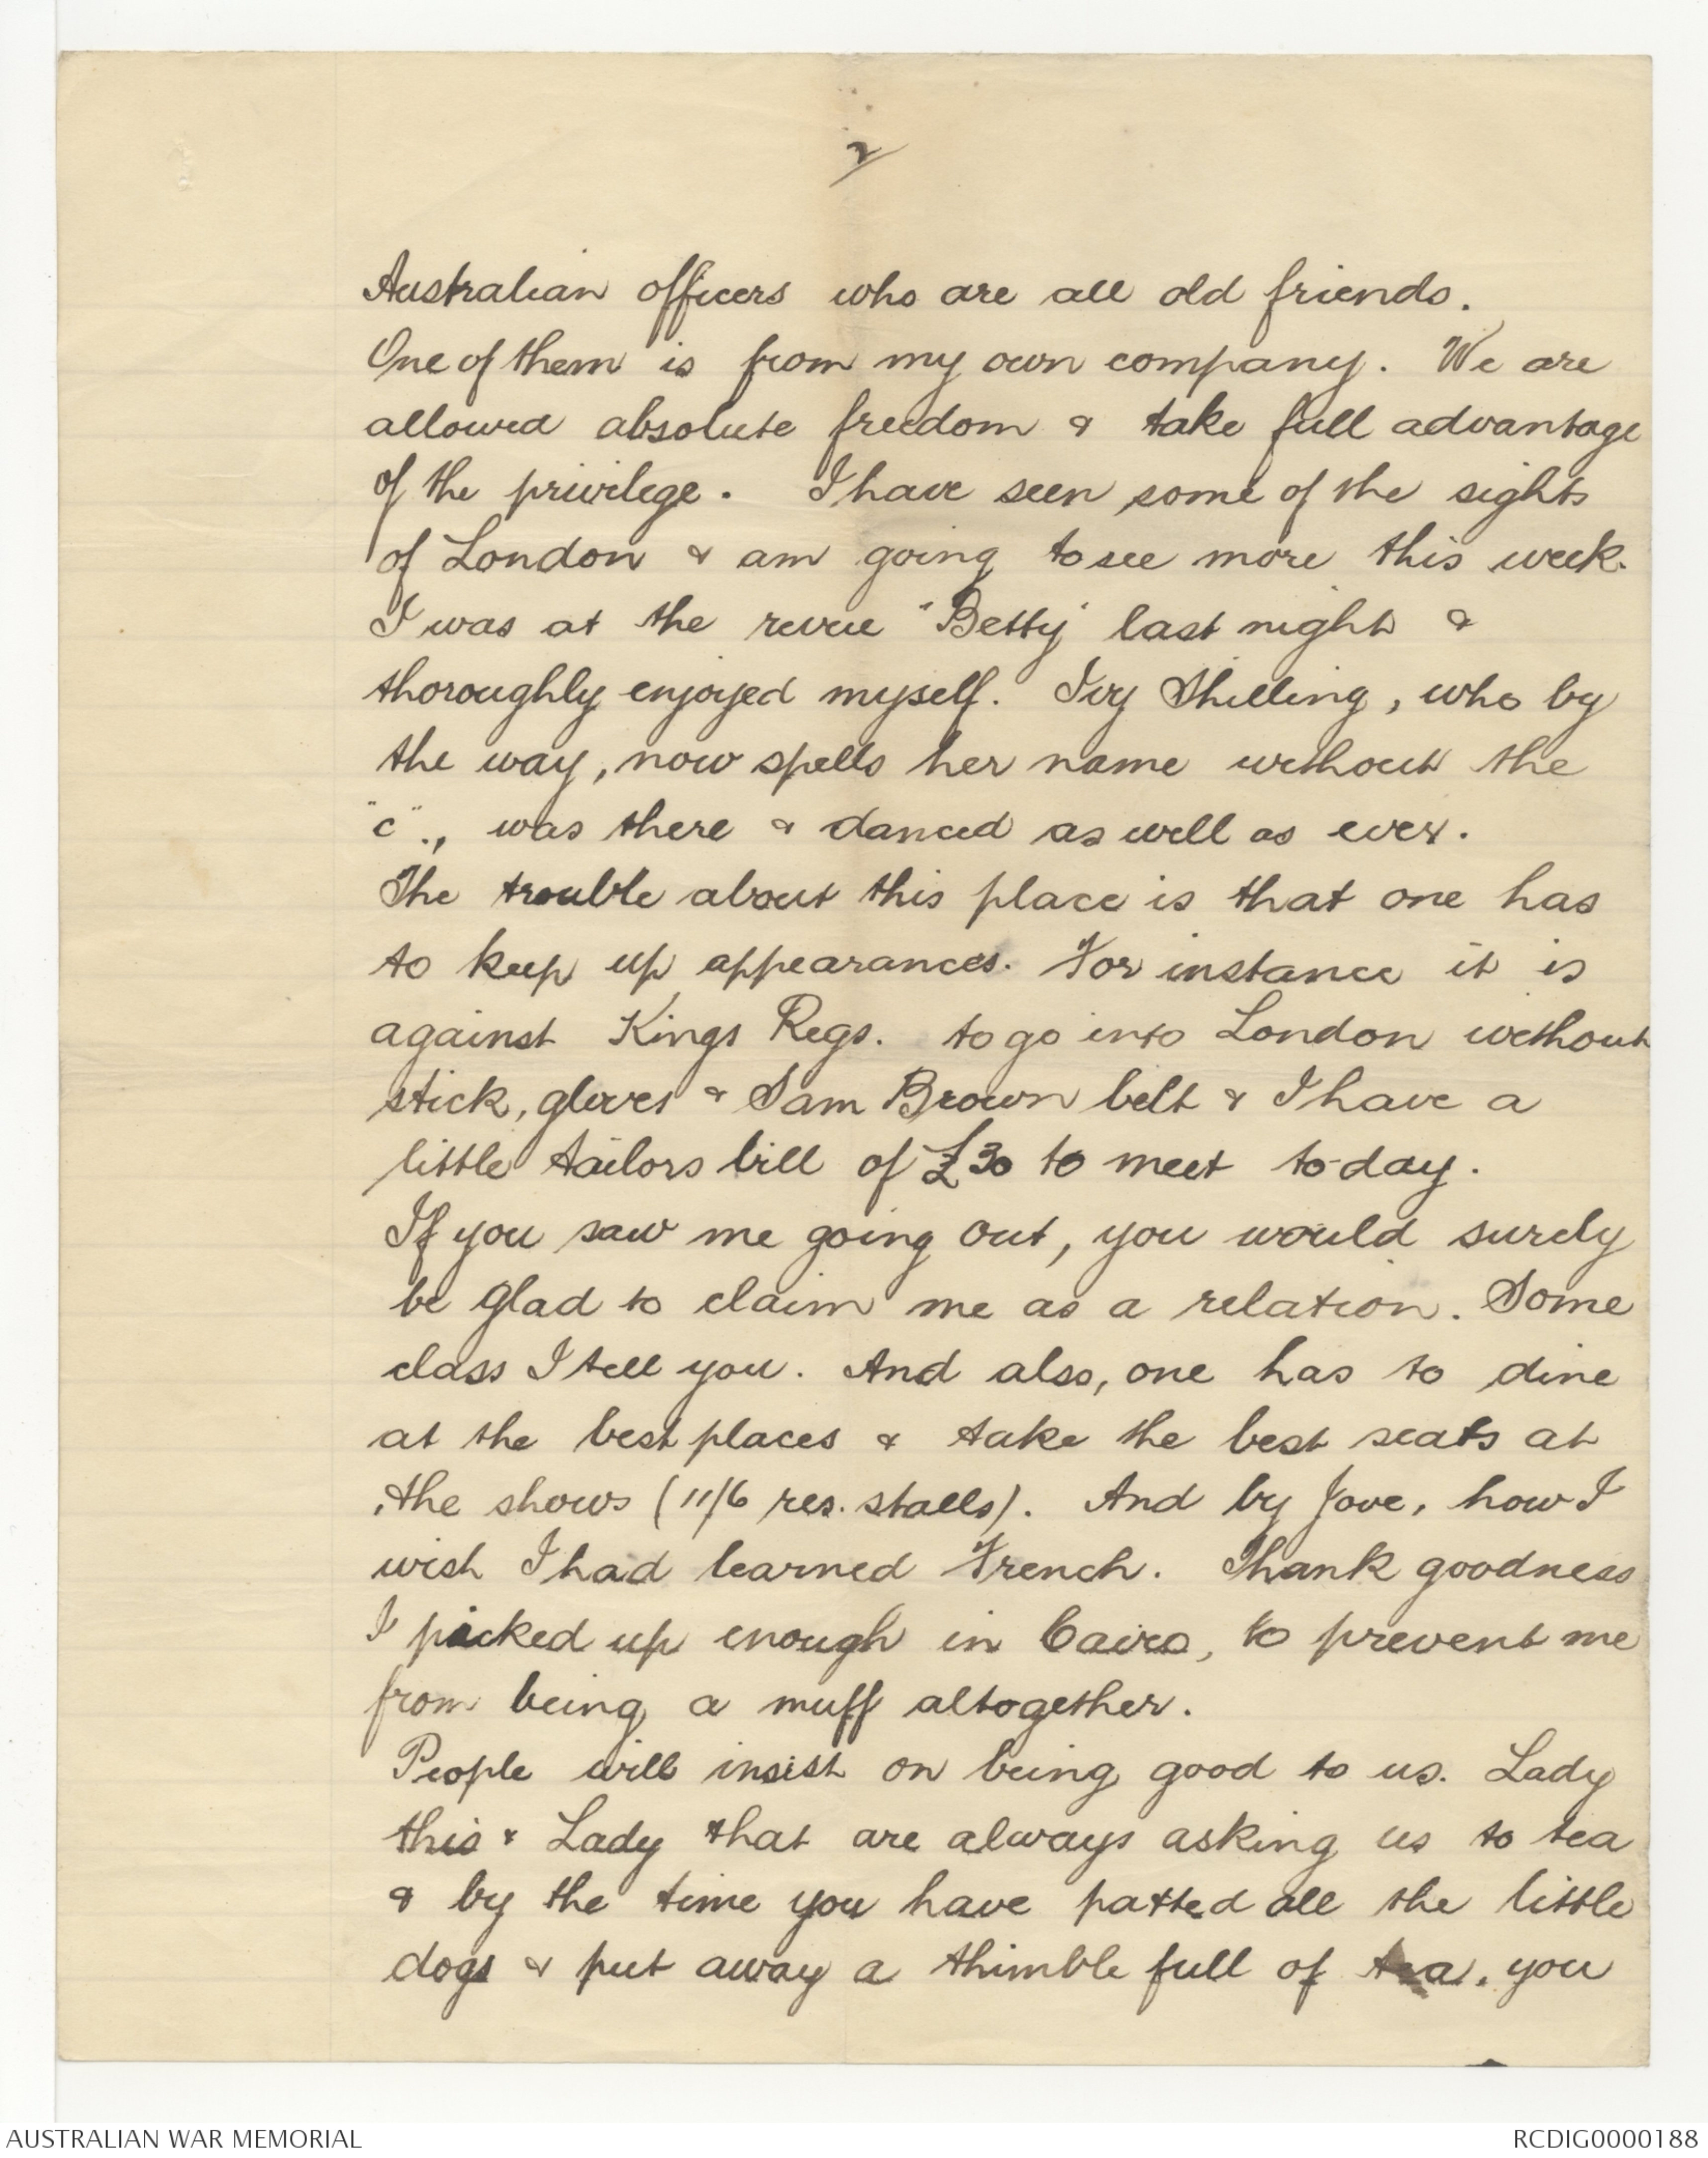 2/
Australian officers who are all old friends.
One of them is from my own company. We are
allowed absolute freedom & take full advantage
of the privilege. I have seen some of the sights
of London & am going to see more this week.
I was at the revue "Betty" last night &
thoroughly enjoyed myself. Ivy Shilling, who by
the way, now spells her name without the
"c"., was there & danced as well as ever.
The trouble about this place is that one has
to keep up appearances. For instance it is
against Kings Regs. to go into London without
stick, gloves & Sam Brown belt & I have a
little tailors bill of £30 to meet to-day.
If you saw me going out, you would surely
be glad to claim me as a relation. Some
class I tell you. And also, one has to dine
at the best places & take the best seats at
the shows (11/6 res. stalls). And by Jove, how I
wish I had learned French. Thank goodness
I picked up enough in Cairo, to prevent me
from being a muff altogether.
People will insist on being good to us. Lady
this & Lady that are always asking us to tea
& by the time you have patted all the little
dogs & put away a thimble full of tea, you
AUSTRALIAN WAR MEMORIAL
RCDIG0000188